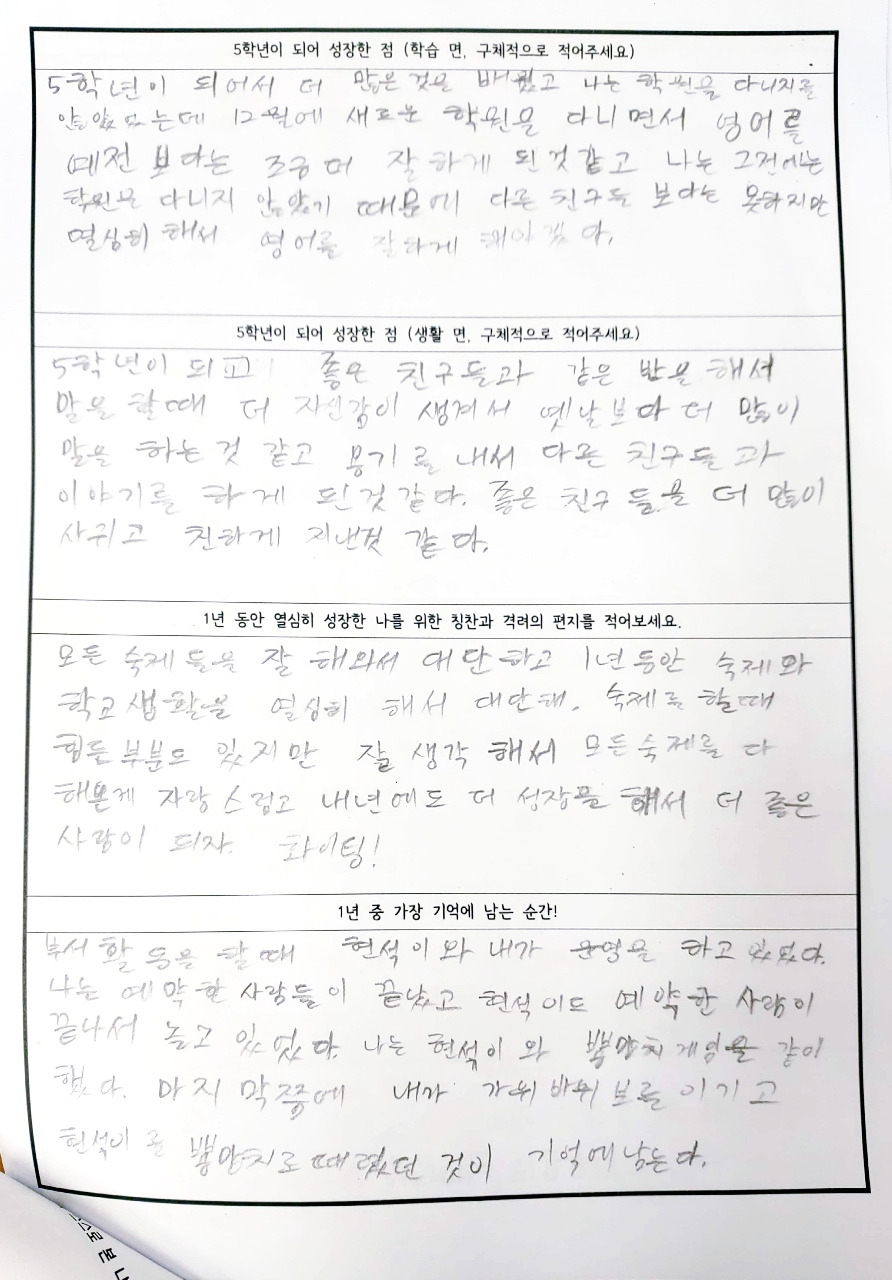 5학년이 되어 성장한 점 (학습 면, 구체적으로 적어주세요)
5학년이 되어서 더 많은 것을 배웠고 나는 학원을 다니지를
않았었는데 12월에 새로운 학원을 다니면서 영어를
예전 보다는 조금 더 잘 하게 된것같고 나는 그전에는
학원을 다니지 않았기 때문에 다른 친구들 보다는 못하지만
열심히 해서 영어를 잘하게 해야겠다.
5학년이 되어 성장한 점 (생활 면, 구체적으로 적어주세요)
5학년이 되고 좋은 친구들과 같은 반을 해서
말을 할때 더 자신감이 생겨서 옛날보다 더 많이
말을 하는것 같고 용기를 내서 다른 친구들과
이야기를 하게 된것같다. 좋은 친구들을 더 많이
사귀고 친하게 지낸것 같다.
1년 동안 열심히 성장한 나를 위한 칭찬과 격려의 편지를 적어보세요.
모든 숙제들을 잘 해와서 대단하고 1년동안 숙제와
학교생활을 열심히 해서 대단해. 숙제를 할때
힘든부분도 있지만 잘 생각해서 모든숙제를 다
해온게 자랑스럽고 내년에도 더 성장을 해서 더 좋은
사람이 되자. 화이팅!
1년 중 가장 기억에 남는 순간!
부서 활동을 할때 현석이와 내가 운영을 하고 있었다.
나는 예약한 사람들이 끝났고 현석이도 예약한 사람이
끝나서 놀고 있었다. 나는 현석이와 뿅망치게임을 같이
했다. 마지막쯤에 내가 가위바위보를 이기고
현석이를 뿅망치로 때렸던 것이 기억에남는다.